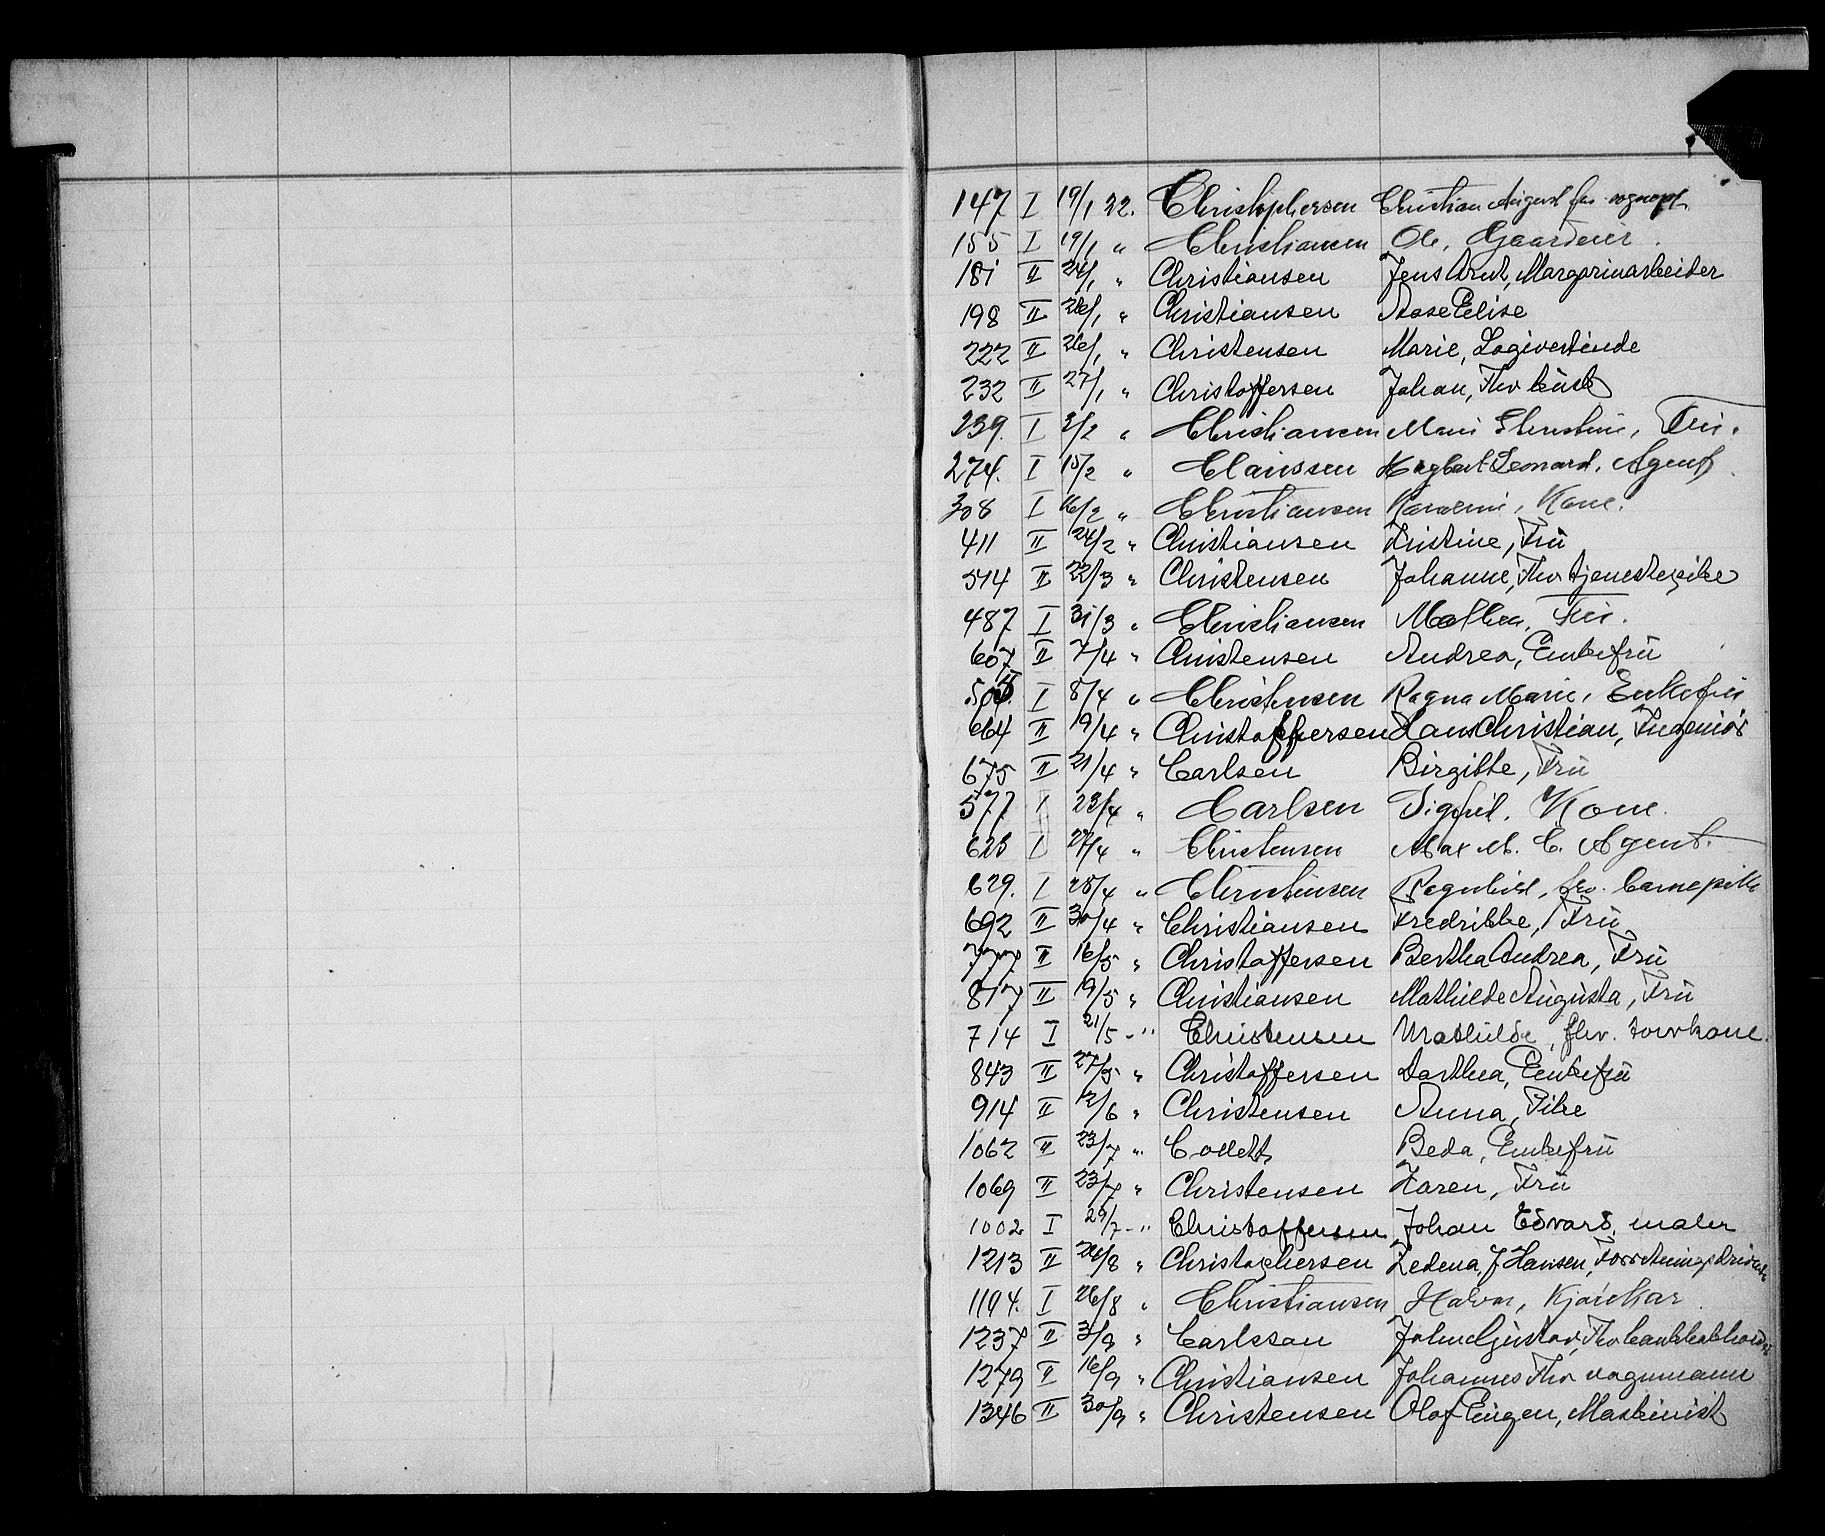 147 I 19/1 22. Christophersen Christian August fhv. vognopp.
155 I 19/1 " Christiansen Ole, Gaardeier.
181 II 24/1 " Christiansen Jens Arnt, Margarinarbeider
198 II 26/1 " Christiansen Aase Elise
222 II 26/1 " Christensen Marie, Logivertinde
232 II 27/1 " Christoffersen Johan, Fhv kusk
239. I 2/2 " Christiansen Marie Christine, Fru.
274. I 15/2 " Claussen Hagbart Leonard, Agent
308 I 16/2 " Christiansen Karoline, Kone.
411 II 24/2 " Christiansen Kristine, Frü
514 II 22/3 " Christensen Johanne, Fhv tjenestepike
487 I 31/3 " Christiansen Mathea, Fru.
607 II 7/4 " Christensen Andrea, Enkefrü
I 8/4 " Christensen Ragna Marie, Enkefru
664 II 19/4 " Christoffersen Hans Christian, Ingeniør
675 II 21/4 " Carlsen Birgitte, Frü
577 I 23/4 " Carlsen Sigfrid, Kone.
623 I 27/4 " Christensen Max M. C. Agent.
629. I 28/4 " Christensen Ragnhild, fhv. barnepike
692 II 30/4 " Christiansen Fredrikke, Frü
777 II 16/5 " Christoffersen Bertha Andrea, Frü
817 II 19/5 " Christiansen Mathilde Augusta, Frü
714 I 21/5 - " Christensen Mathilde, fhv. torvkone.
843 II 27/5 " Christoffersen Dorthea, Enkefrü
914 II 12/6 " Christensen Anna, Pike
1062 II 23/7 " Collett Beda, Enkefrü
1069 II 23/7 " Christensen Karen, Frü
1002 I 29/7 - " Christoffersen Johan Edvard, maler
1213 II 24/8 " Christophersen Zedena, f Hansen, Forretningsdrivende
1194. I 26/8 " Christiansen Halvor, Kjørekar
1237 II 3/9 " Carlsson John Gustav, Fhv
1279 II 16/9 " Christiansen Johannes Fhv vognmann
1346 II 30/9 " Christensen Olaf Eugen, Maskinist